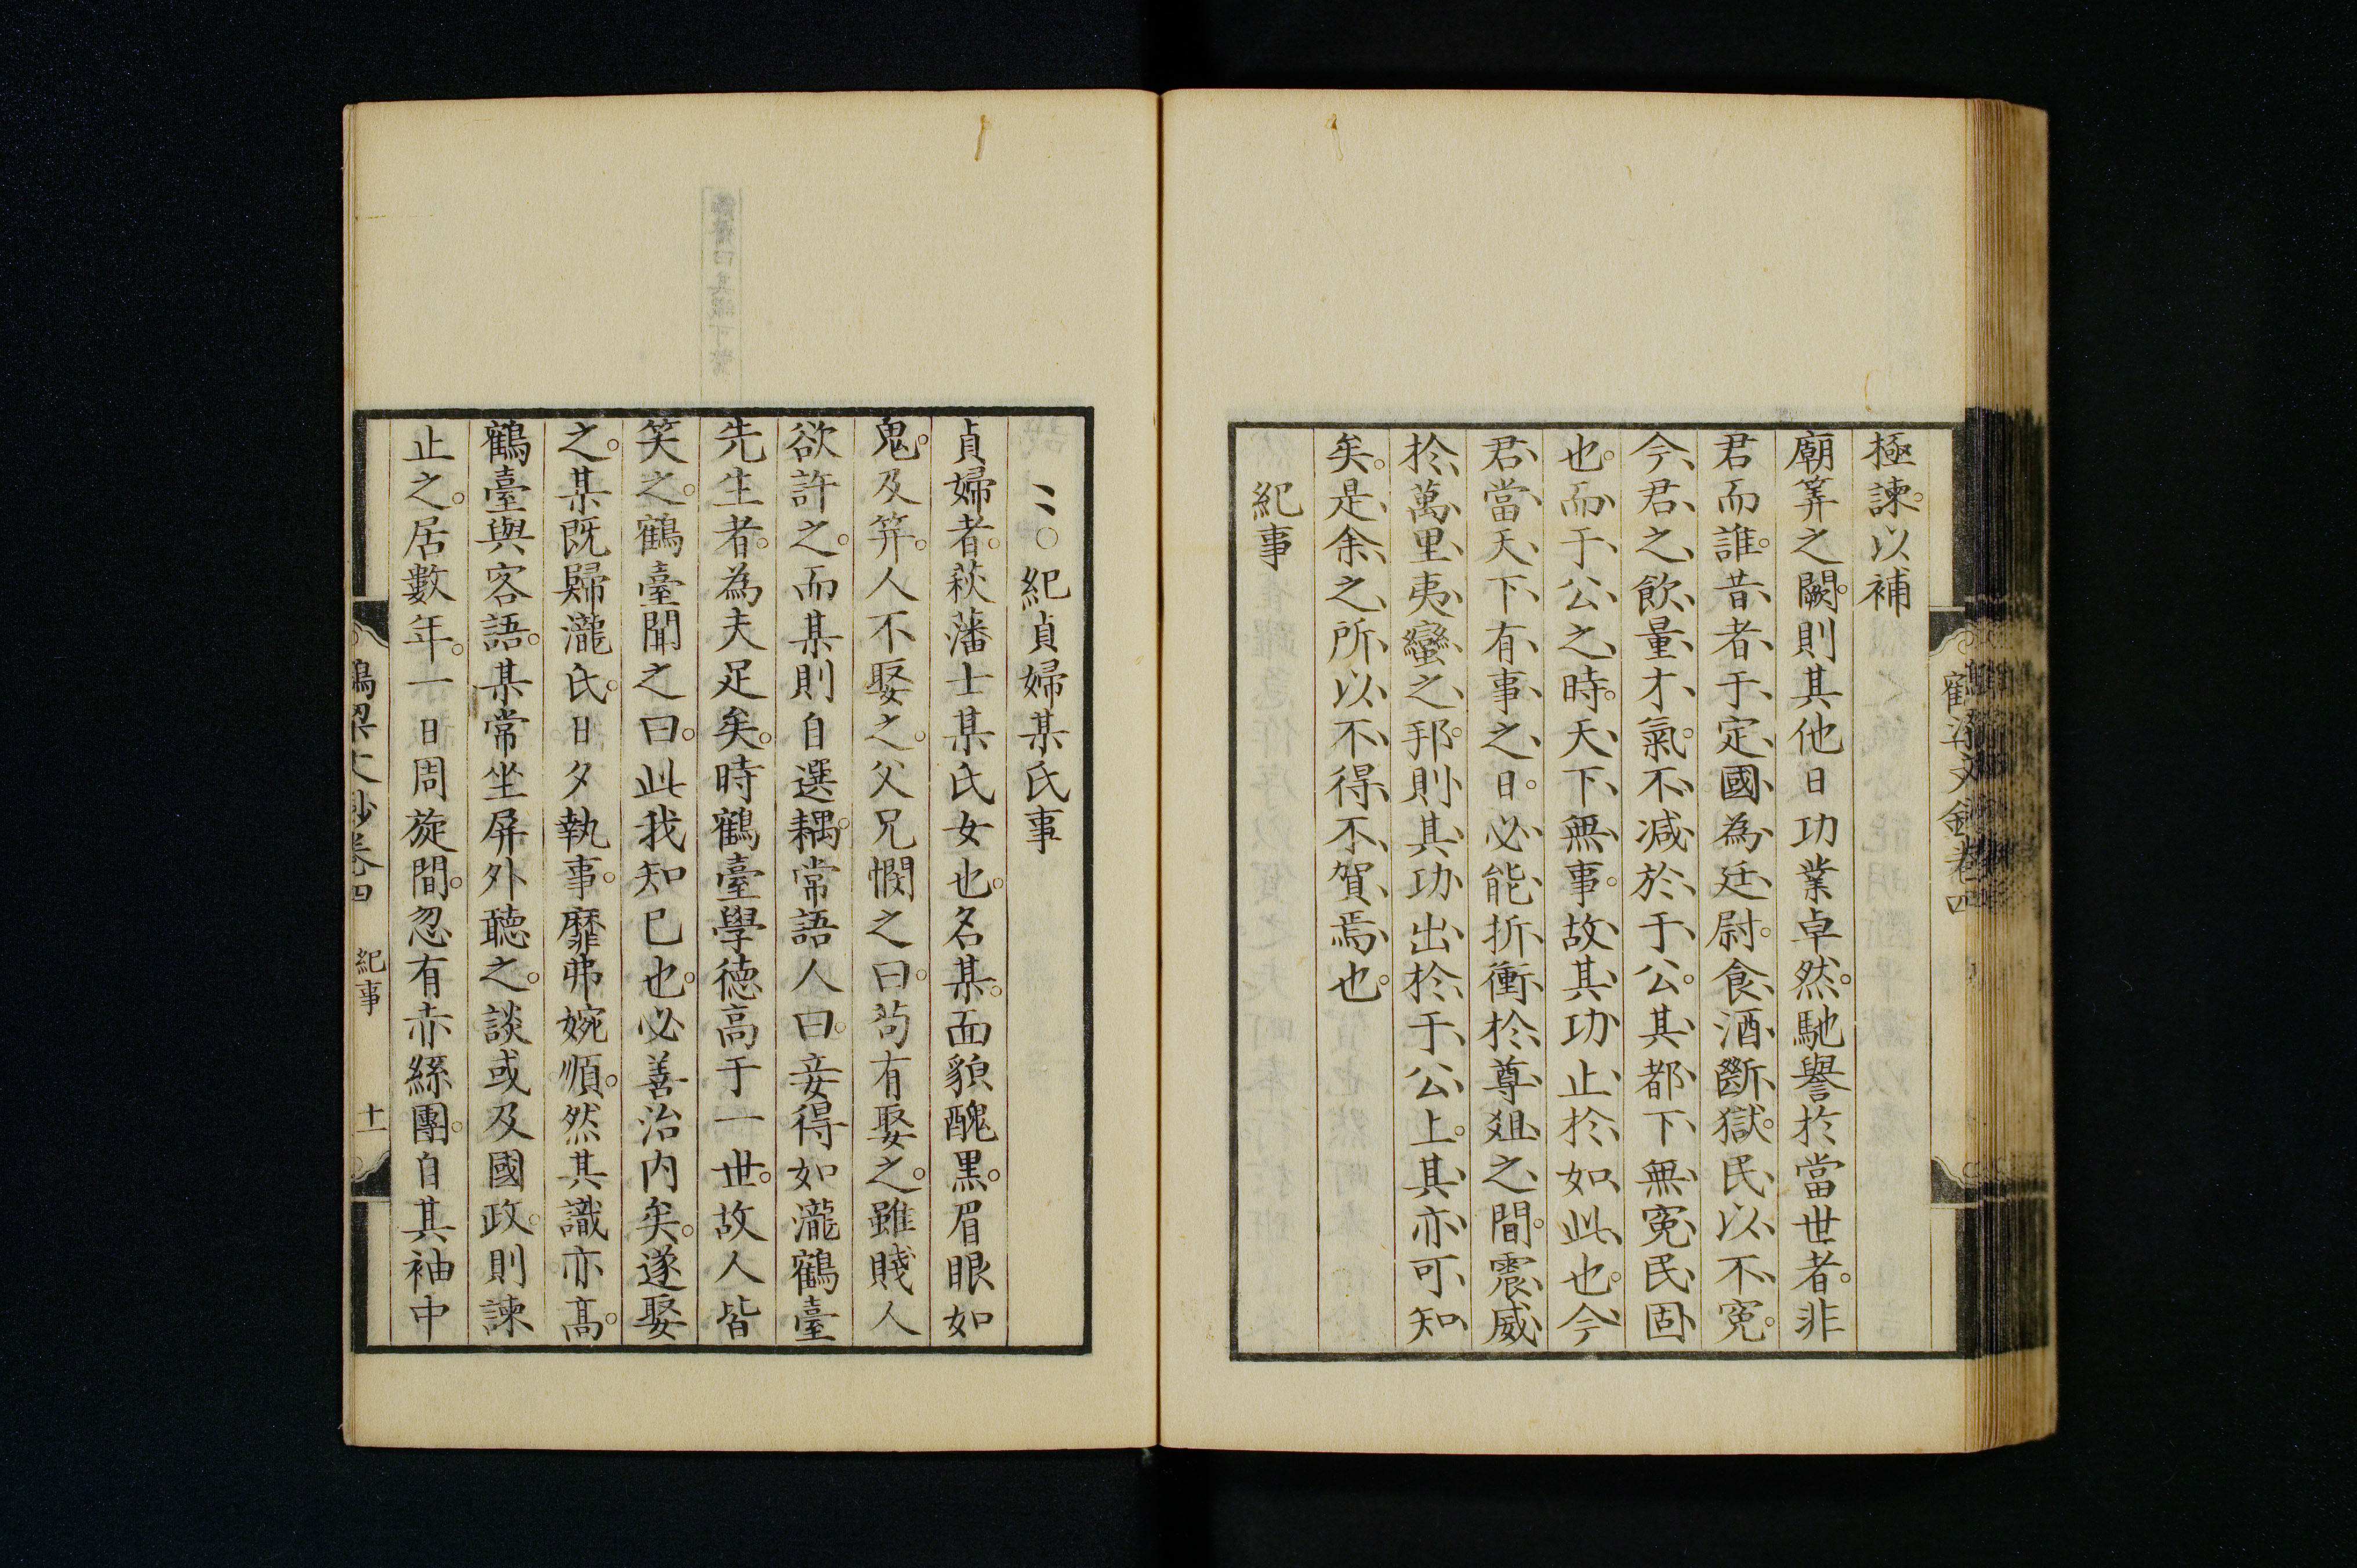 極諫。以補
廟筭之闕。則其他日功業卓然。馳譽於當世者。非
君而誰。昔者、于定國為廷尉。食酒斷獄。民以不寃。
今君之飲量才氣。不减於于公。其都下無寃民固
也。而于公之時。天下無事。故其功止於如此也。今
君當天下有事之日。必能折衝於尊爼之間。震威
於萬里夷蠻之邦。則其功出於于公上。其亦可知
矣。是余之所以不得不賀焉也。
紀事
鶴梁文鈔卷四
〻○紀貞婦某氏事
貞婦者。萩藩士某氏女也。名某。面貌醜黒。眉眼如
鬼。及筓。人不娶之。父兄憫之。曰。苟有娶之。雖賤人
欲許之。而某則自選耦。常語人曰。妾得如瀧鶴臺
先生者。為夫足矣。時鶴臺學德高于一世。故人皆
笑之。鶴臺聞之曰。此我知己也。必善治内矣。遂娶
之。某既歸瀧氏。日夕執事。靡弗婉順。然其識亦髙。
鶴臺與客語。某常坐屏外聽之。談或及國政。則諫
止之。居數年。一日周旋間。忽有赤絲團。自其袖中
鶴梁文鈔卷四 紀事 十一